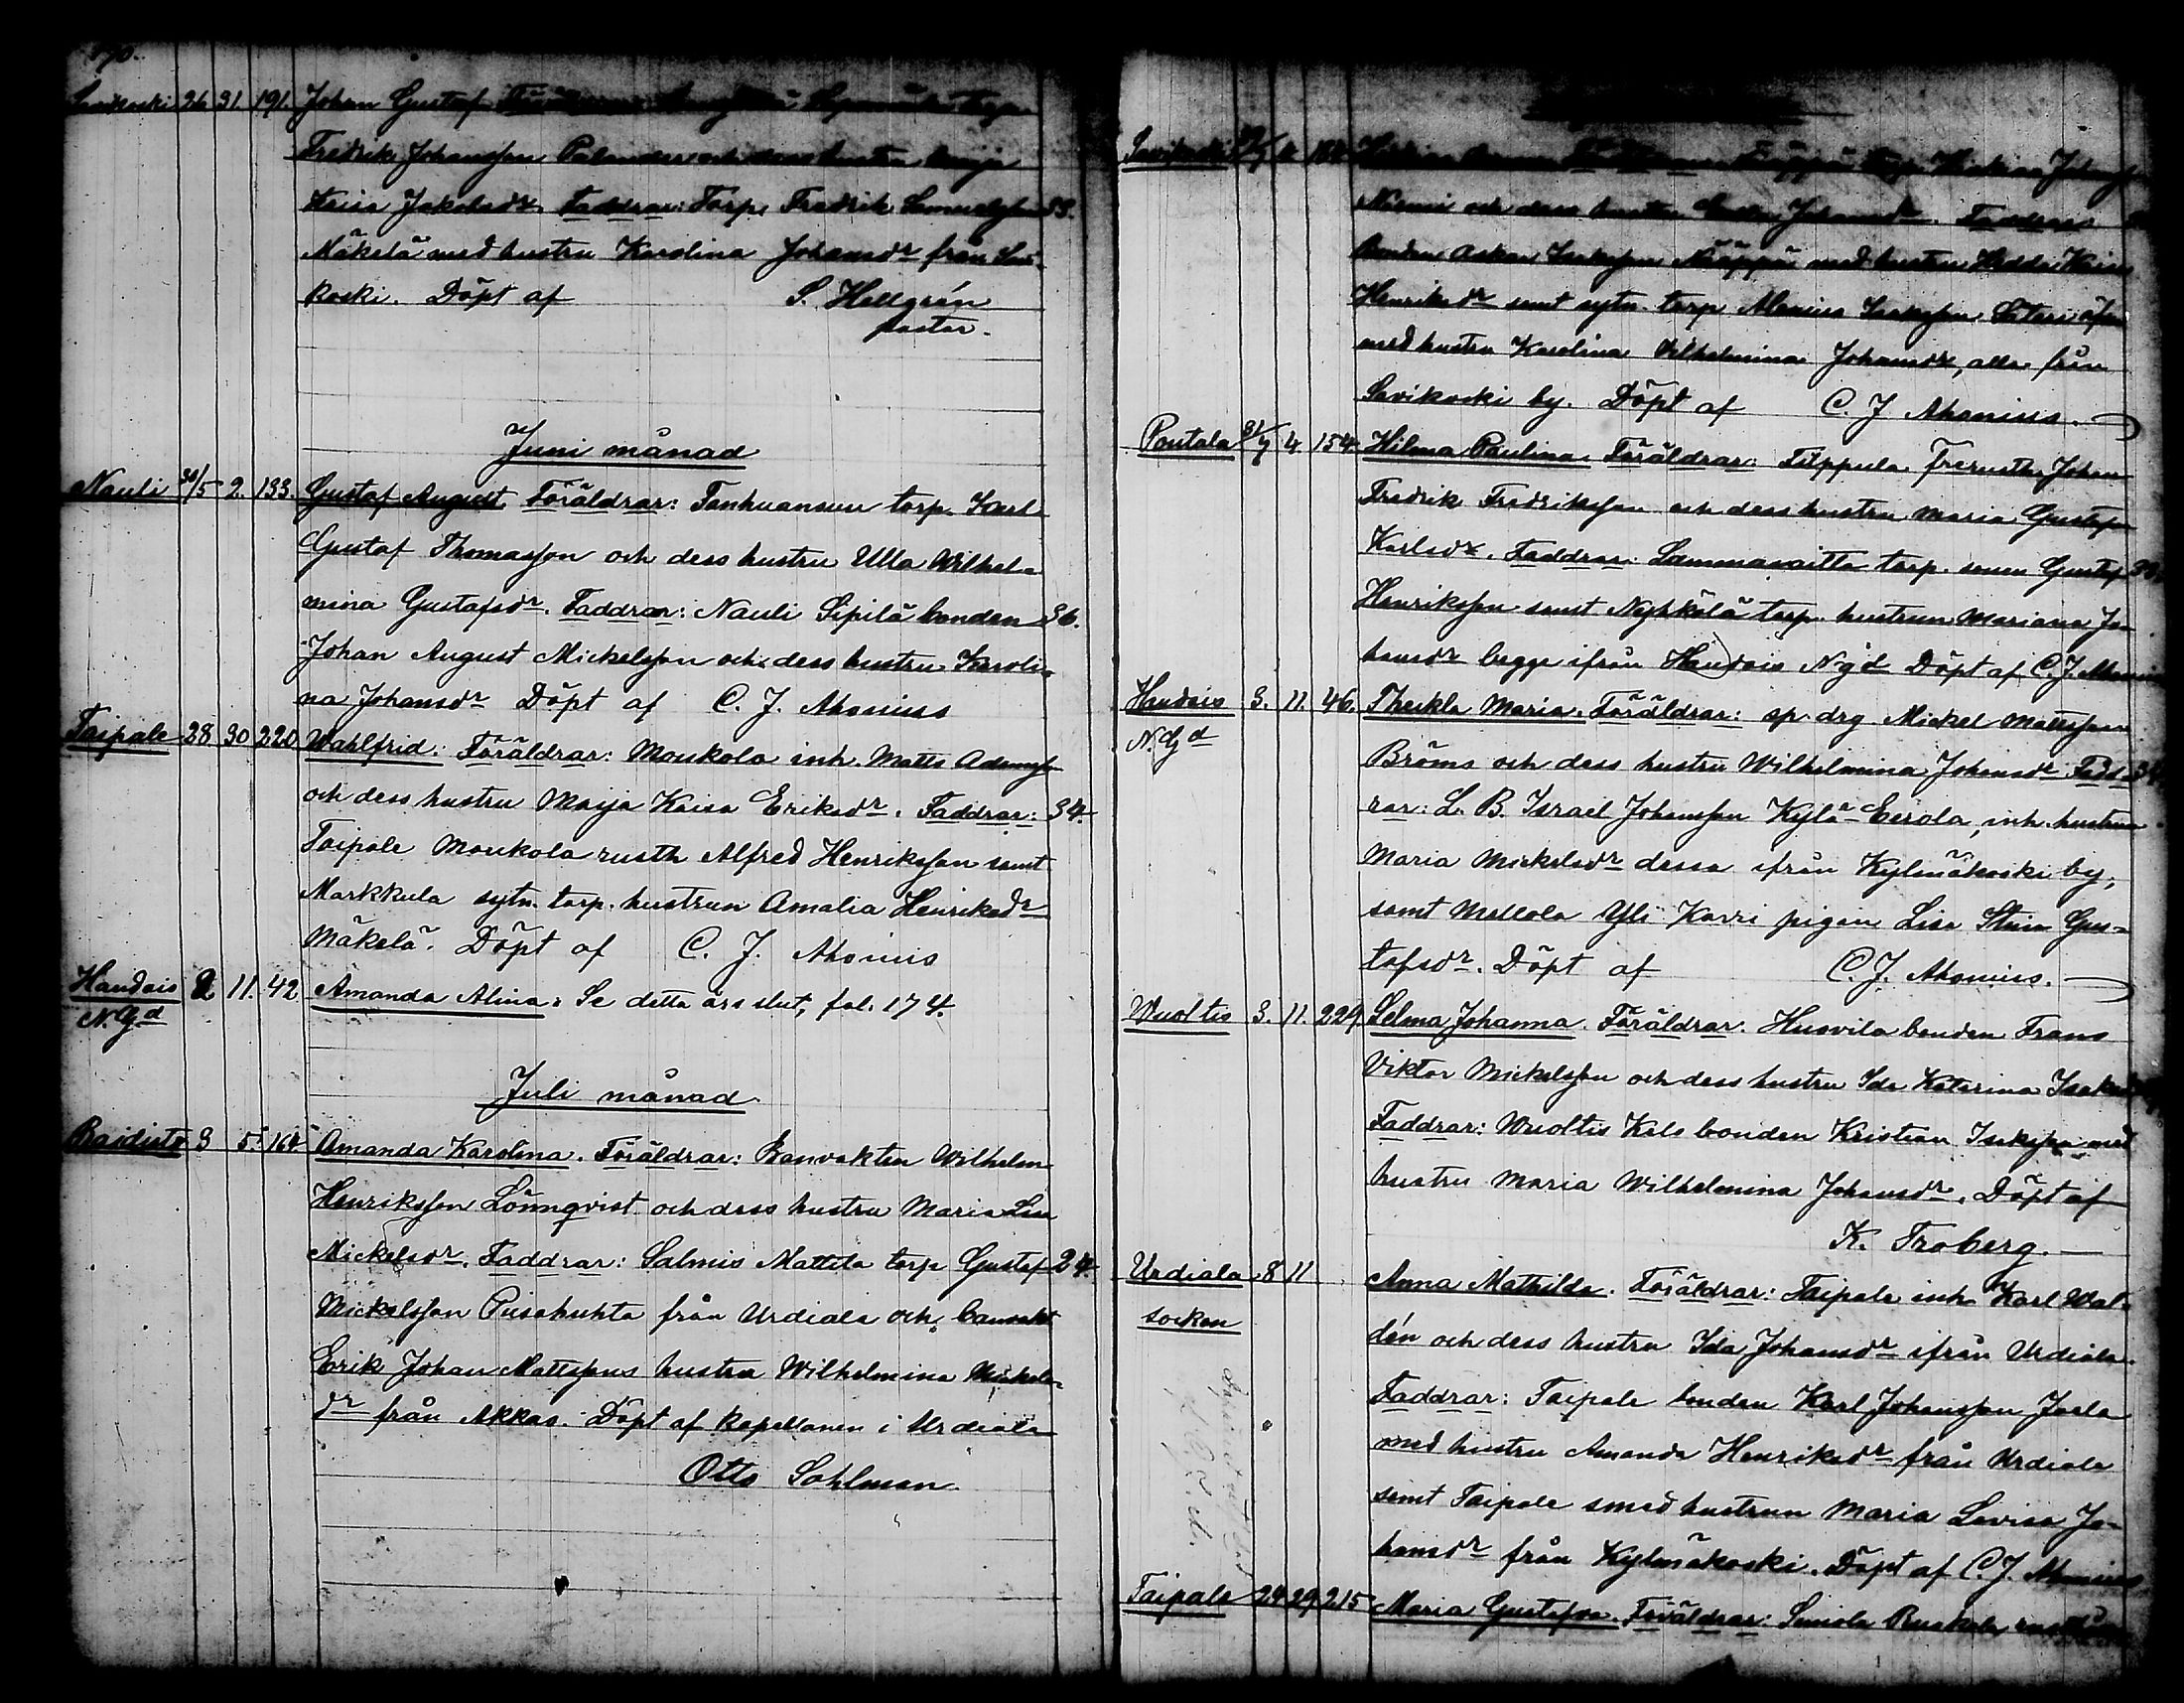 170.
Savikoski 26 31. 191. Johan Gustaf. Föräldrar:
Fredrik Johansson Palander och dess hustru Maija
Kaisa Jakobsdr. Faddrar: Torp. Fredrik Samuelsson 33.
Mäkelä med hustru Karolina Johansdr från Savi-
koski. Döpt af S. Hellgrén
pastor.
Juni månad
Nauli 30/5 2. 133. Gustaf August. Föräldrar: Tanhuansuu torp. Karl
Gustaf Thomasson och dess hustru Ulla Wilhel-
mina Gustafsdr. Faddrar: Nauli Sipilä bonden 36.
Johan August Mickelsson och dess hustru Karoli-
na Johansdr Döpt af C. J. Ahonius
Taipale 28 30 220 Wahlfrid. Föräldrar: Moukola inh. Matts Adamsson
och dess hustru Maija Kaisa Eriksdr. Faddrar: 34.
Taipale Moukola rusth Alfred Henriksson samt
Markkula sytn. torp. hustrun Amalia Henriksdr
Mäkelä. Döpt af C. J. Ahonius
Haudois 2 11. 42 Amanda Alina. Se detta års slut, fol. 174.
N. Gd
Juli månad
3 5. 164 Amanda Karolina. Föräldrar: Banvakten Wilhelm
Henriksson Lönnqvist och dess hustru Maria Lisa
Mickelsdr. Faddrar: Salmis Mattila torp Gustaf 24.
Mickelsson Pusahuhta från Urdiala och banvakt
Erik Johan Mattssons hustru Wilhelmina Mickels-
dr från Akkas. Döpt af kapellanen i Urdiala
Otto Sohlman.
Savikoski 4 Johansson
Niemi och dess hustru Johansdr. Faddrar:
bonden Oskar Isaksson Näppä med hustru Hedda Kaisa
Henriksdr samt sytn. torp Isaksson
med hustru Karolina Vilhelmina Johansdr, alla från
Savikoski by. Döpt af C. J Ahonius.
Pontala 31/7 4. 154. Hilma Paulina. Föräldrar: Filppula Johan
Fredrik Fredriksson och dess hustru Maria Gustafva
Karlsdr. Faddrar: Lammasaitta torp. sonen Gustaf 33.
Henriksson samt Nyhkälä torp. hustrun Mariana Jo-
hansdr begge ifrån Haudois N.gd Döpt af C. J. Ahonius
Haudois 3. 11. 46. Theikla Maria. Föräldrar: sp. drg Mickel Mattsson
N. Gd
Bröms och dess hustru Wilhelmina Johansdr. Fadd- 34.
rar: L. B. Israel Johansson Kylä-Eerola, inh. hustrun
Maria Mickelsdr dessa ifrån Kylmäkoski by,
samt Mellola Yli Karri pigan Lisa Stina Gus-
tafsdr. Döpt af C. J. Ahonius.
Wuoltis 3. 11. 229. Selma Johanna. Föräldrar. Husvila bonden Frans
Viktor Mickelsson och dess hustru Ida Katarina Isaksdr
Faddrar: Wuoltis Kals bonden Kristian Isaksson med
hustru Maria Wilhelmina Johansdr. Döpt af
K. Troberg.
Urdiala 8 11 Anna Mathilda. Föräldrar: Taipale inh Karl Wal-
socken
dén och dess hustru Ida Johansdr ifrån Urdiala.
Faddrar: Taipale bonden Karl Johansson Jaala
med hustru Amanda Henriksdr från Urdiala
samt Taipale smedhustrun Maria Lovisa Jo-
hansdr från Kylmäkoski. Döpt af C J. Ahonius
Taipale 24 29 215 Maria Gustafva. Föräldrar: Simola Ruskala